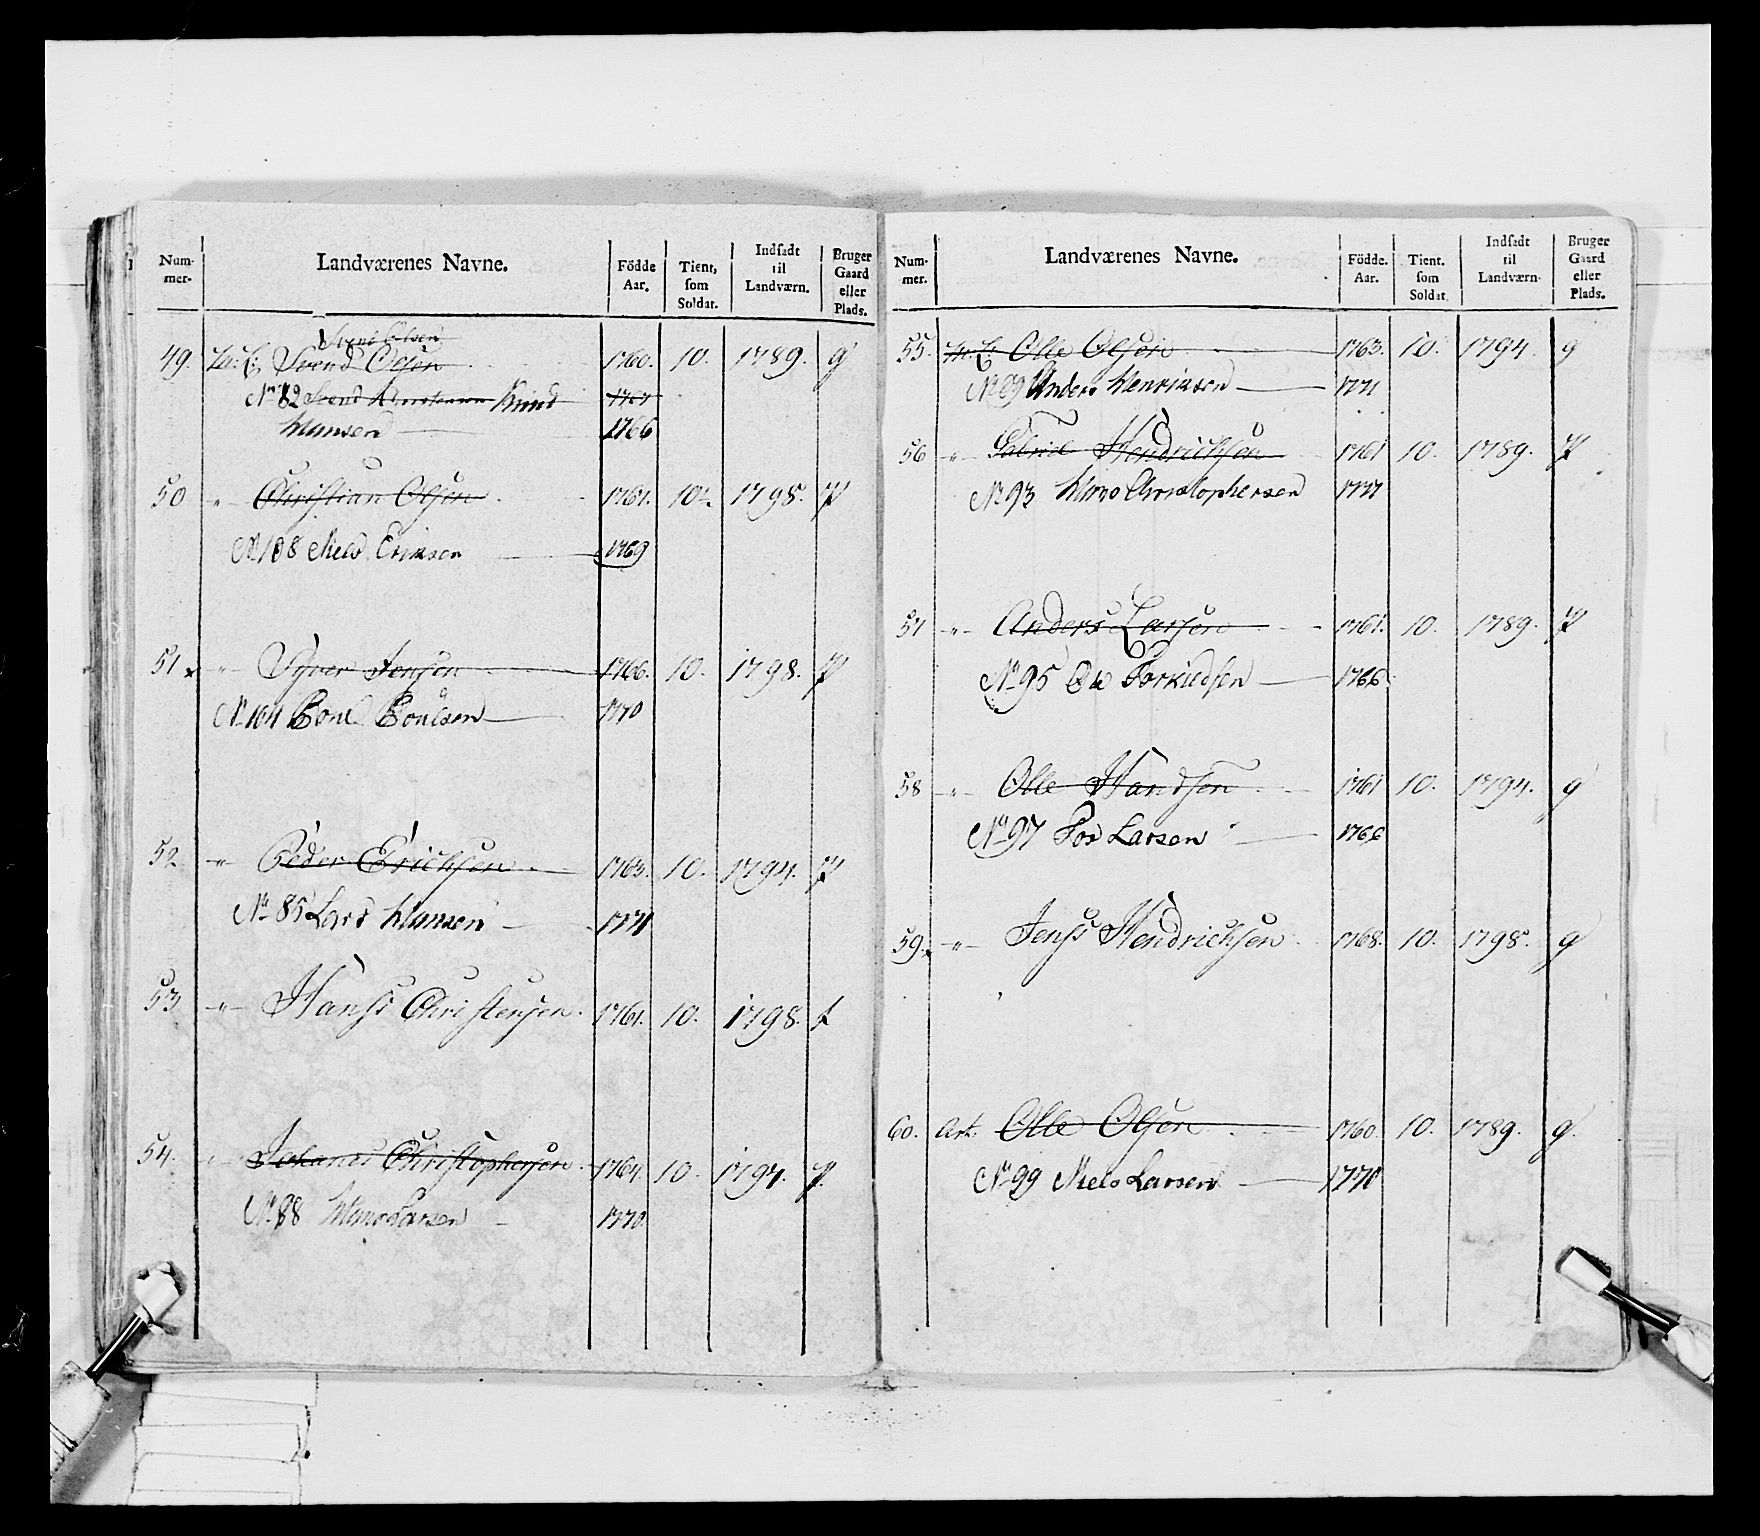 Num-
mer-
Landværenes Navne.
Födde
Aar.
Tient,
som
Soldat.
Indsadt
til
Landværn.
Bruger
Gaard
eller
Plads.
Svend Olsen
49. Svend Olsen 1760. 10. 1789. g
No 82 Svend Knud
Hansen 1766
50 " Christian Olsen 1761. 10. 1798. p
No 108 Niels Eriksen 1769
51 " Syver Jensen 1766. 10. 1798. p
No 104 Poul Poulsen 1770
52 " Peder Erichsen 1763. 10. 1794. p
No 85 Lars Hansen 1771
53 " Hans Christensen 1761. 10. 1798.
54. " Johanes Christophersen 1764. 10 1794. p.
No 88 Hans Larsen 1770
Num-
mer.
Landværenes Navne.
Födde.
Aar.
Tient.
som
Soldat
Indsadt
til
Landværn-
Bruger
Gaard
eller
Plads.
55. Olle Olsen 1763. 10. 1794. g
No 89 Anders Henriksen 1771
56 " Gabriel Hendrichsen 1761 10. 1789. p
No 93 Hans Christophersen 1777
57 " Anders Larsen 1761. 10. 1789. p
No 95 Ole Torkildsen 1766
58 " Olle Handsen 1761 10. 1794. g
No 97 Tor Larsen 1766
59. " Jens Hendrichsen 1768. 10. 1798. g
60. Art. Olle Olsen 1760. 10. 1789. g.
No 99 Niels Larsen 1770